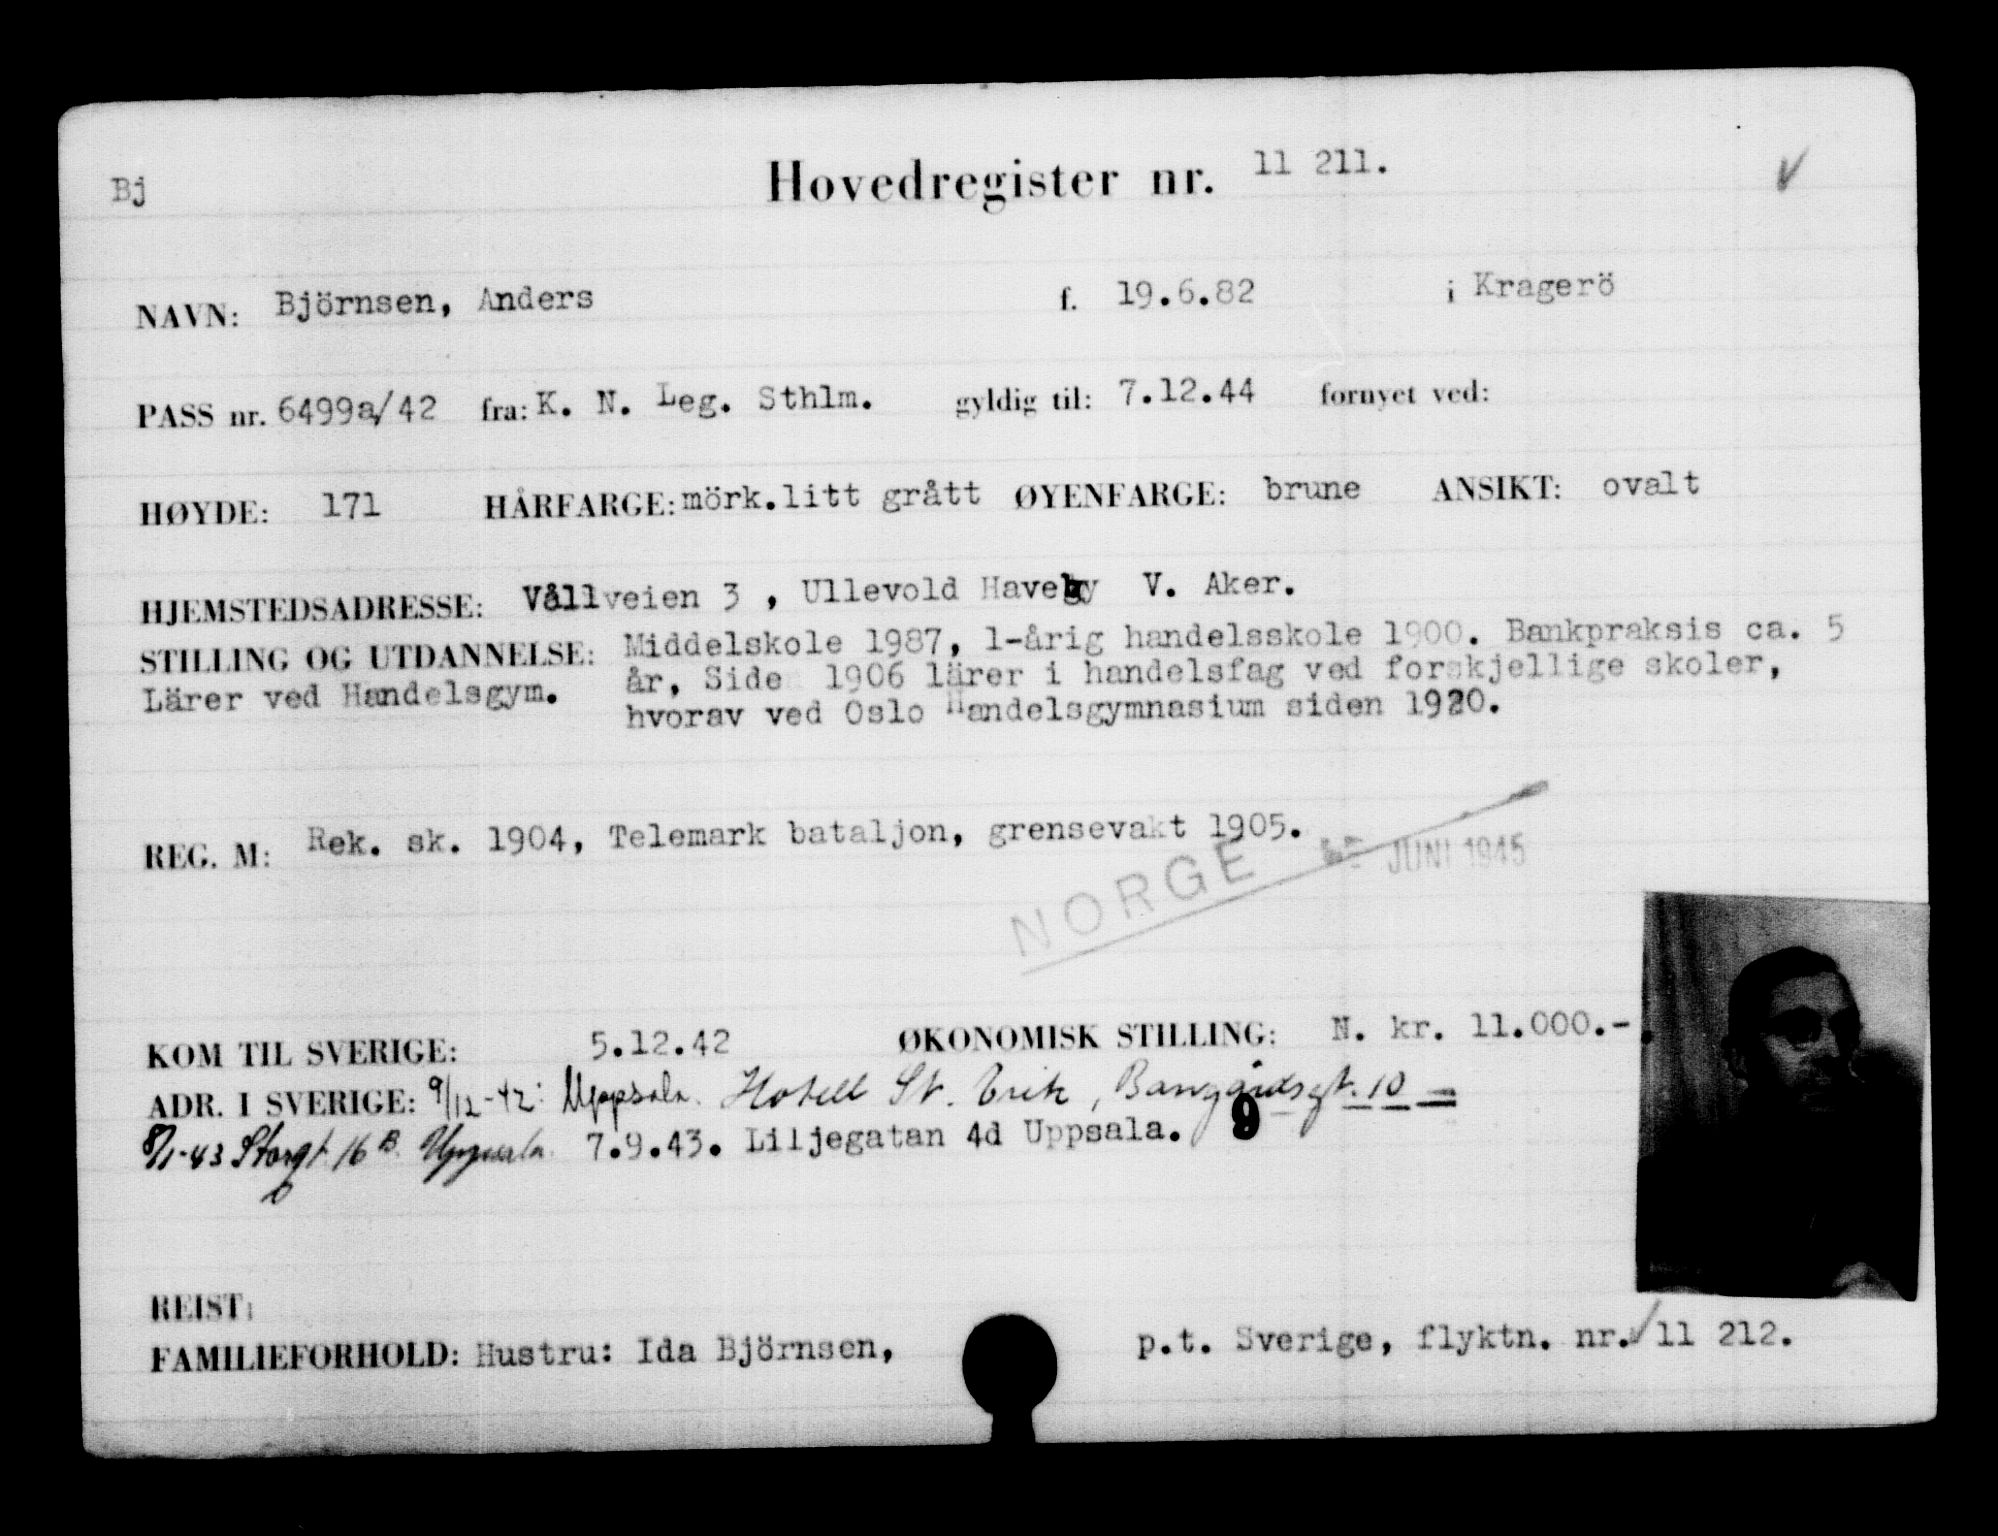 Bj
Hovedregister nr. 11 211.
NAVN: Björnsen, Anders f. 19.6.82 i Kragerö
PASS nr. 6499a/42 fra: K. N. Leg. Sthlm. gyldig til: 7.12.44 fornyet ved:
HØYDE: 171 HÅRFARGE: mörk.litt grått ØYENFARGE: brune ANSIKT: ovalt
HJEMSTEDSADRESSE: Vållveien 3 , Ullevold Haveby V. Aker.
STILLING OG UTDANNELSE: Middelskole 1987, 1-årig handelsskole 1900. Bankpraksis ca. 5
Lärer ved Handelsgym. år, Side 1906 lärer i handelsfag ved forskjellige skoler,
hvorav ved Oslo Handelsgymnasium siden 1920.
REG. M: Rek. sk. 1904, Telemark bataljon, grensevakt 1905.
NORGE JUNI 1945
KOM TIL SVERIGE: 5.12.42 ØKONOMISK STILLING: N. kr. 11.000.-.
ADR. I SVERIGE: 9/12-42: Uppsala. Hotell St. Erik, Bangårdsgt. 10
8/1-43 Storgt. 16 B. Uppsala. 7.9.43. Liljegatan 4d Uppsala. 9
REIST:
FAMILIEFORHOLD: Hustru: Ida Björnsen, p.t. Sverige, flyktn. nr. 11 212.